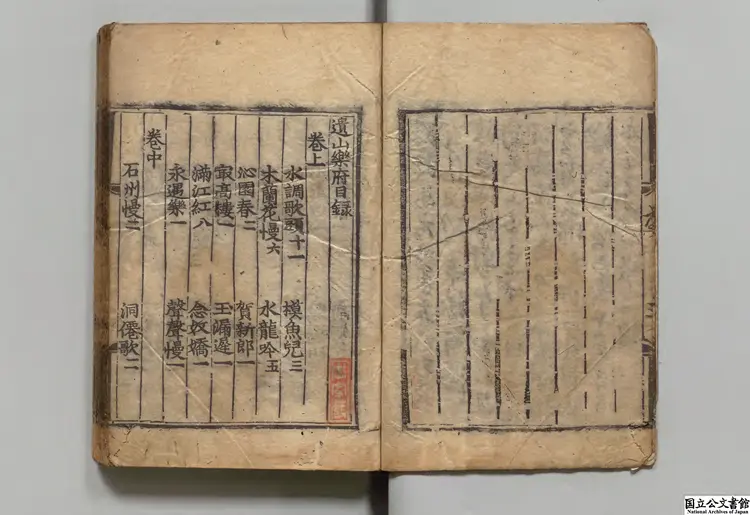 遺山樂府目録
卷上
水調歌頭十一 摸魚兒三
木蘭花慢六 水龍吟五
沁園春二 賀新郎一
最高樓一 玉漏遲一
滿江紅八 念奴嬌一
永遇樂一 聲聲慢一
卷中
石州慢二 洞僊歌二
国立公文書館
National Archives of Japan